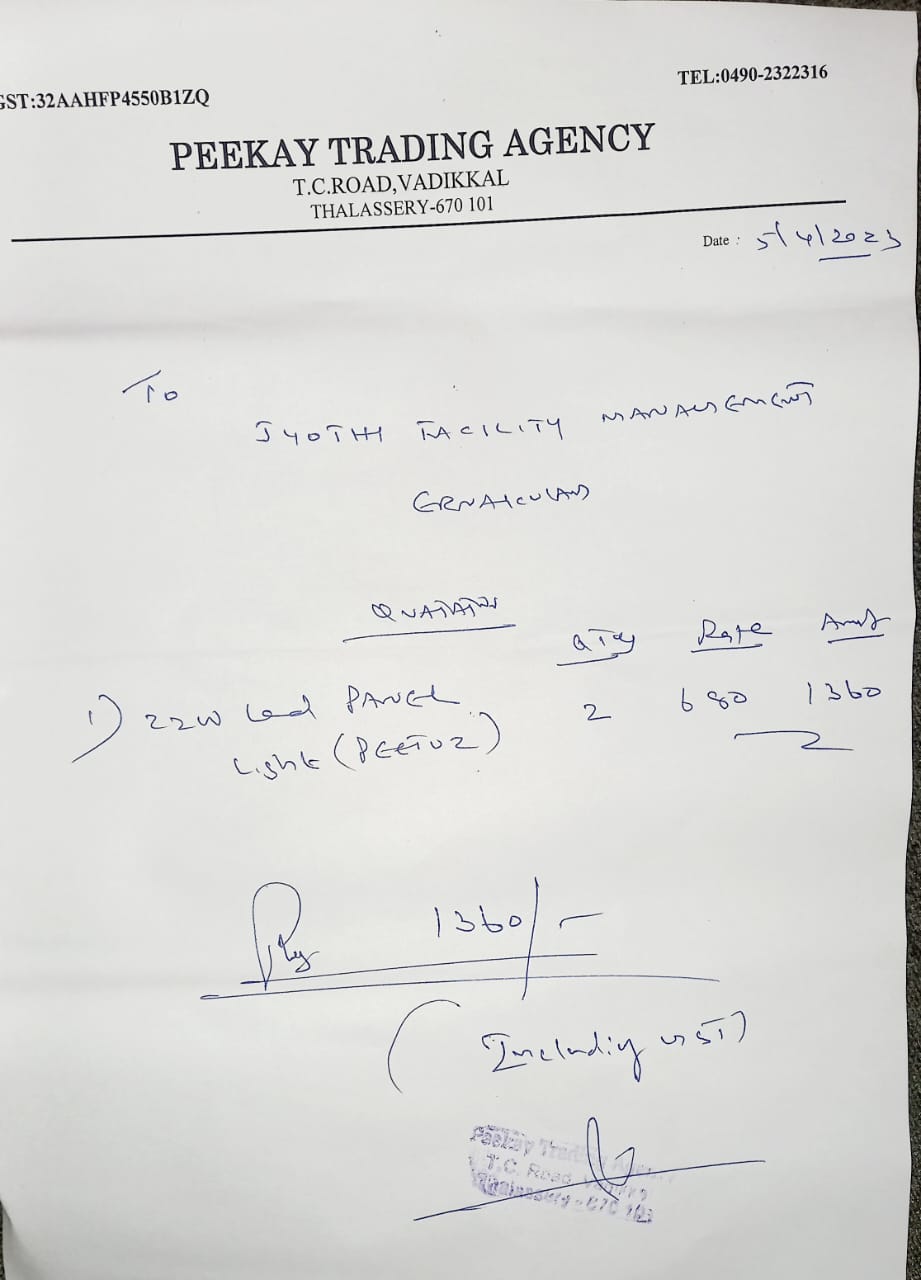 GST:32AAHFP4550B1ZQ
TEL:0490-2322316
PEEKAY TRADING AGENCY
T.C.ROAD,VADIKKAL
THALASSERY-670 101
Date : 5/4/2023
To
JYOTHI FACILITY MANAGEMENT
ERNAKULAM
QUATATION
QTY Rate Amt
1) 22W Led PANEL 2 680 1360
Light
1360/-
(Including GST)
Peekay Trading
T.C. Road,
Thalassery - 670 101